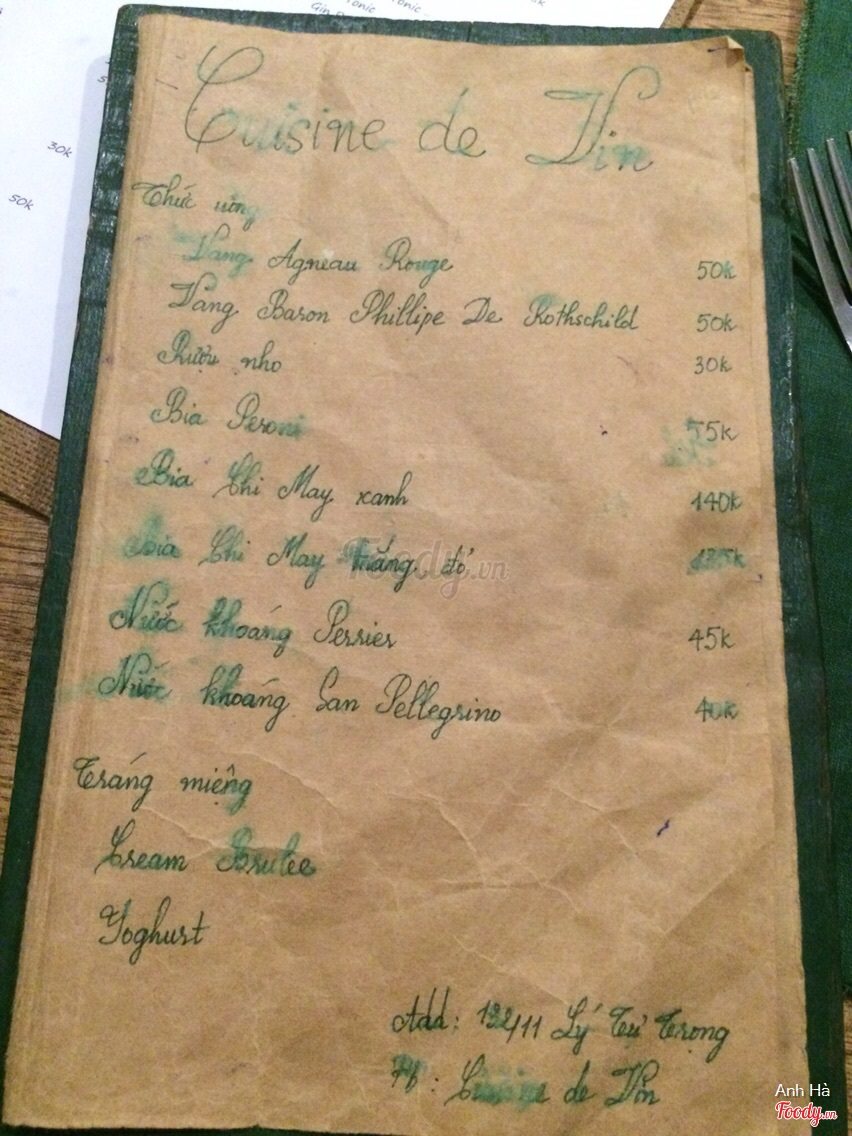 Gin Tonic
30k
50k
Cuisine de Vin
Thức uống
Vang Agneau Rouge 50k
Vang Baron Phillipe De Rothschild 50k
Rượu nho 30k
Bia Peroni 55k
Bia Chi May xanh 140k
Bia Chi May trắng, đỏ
Nước khoáng Perrier 45k
Nước khoáng San Pellegrino 40k
Tráng miệng
Cream Brulee
Yoghurt
Add: Lý Tự Trọng
Cuisine de Vin
Foody.vn
Anh Hà
Foody.vn